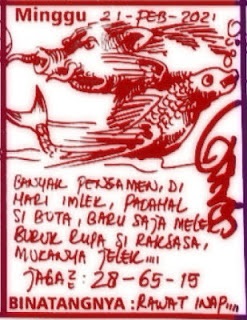 Minggu 21-FEB-2021
BANYAK PENGAMEN, DI
HARI IMLEK, PADAHAL
SI BUTA, BARU SAJA MELEK
BURUK RUPA SI RAKSASA,
MUKANYA JELEK,,,,
JAGA2 : 28-65-15
BINATANGNYA : RAWAT INAP,,,,